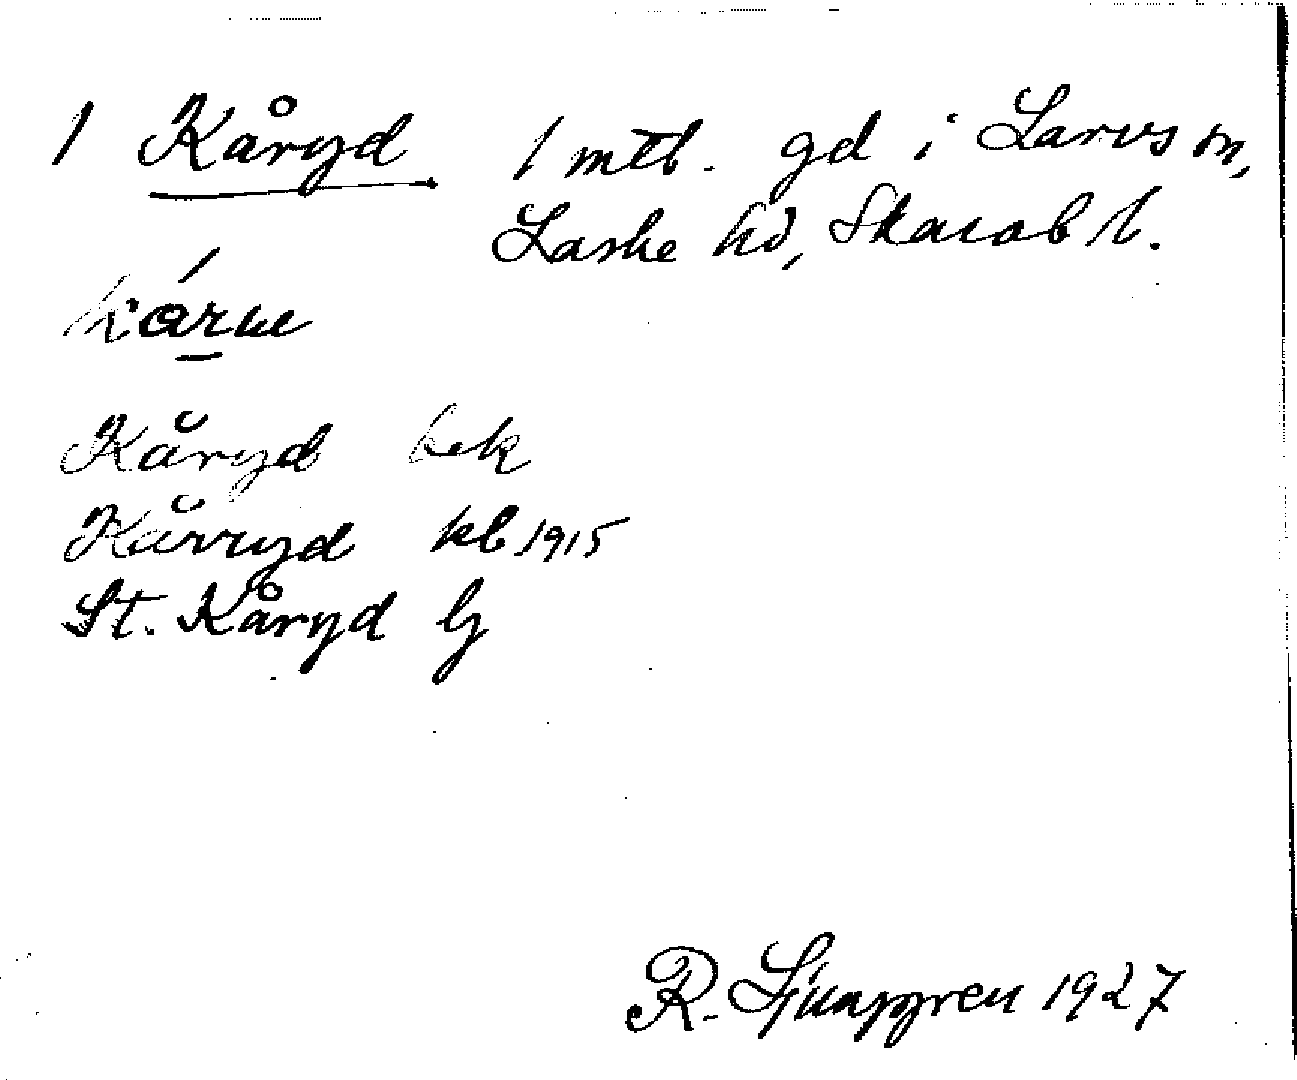 1 Kåryd 1 mtl. gd i Larvs sn,
Laske hd, Skarab l.
Kåryd kek
Kårryd kb 1915
St. Kåryd G
R. Ljunggren 1927